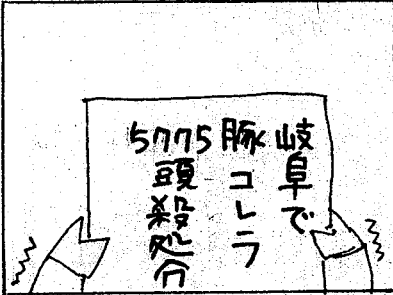 岐阜で
豚コレラ
5775頭殺処分